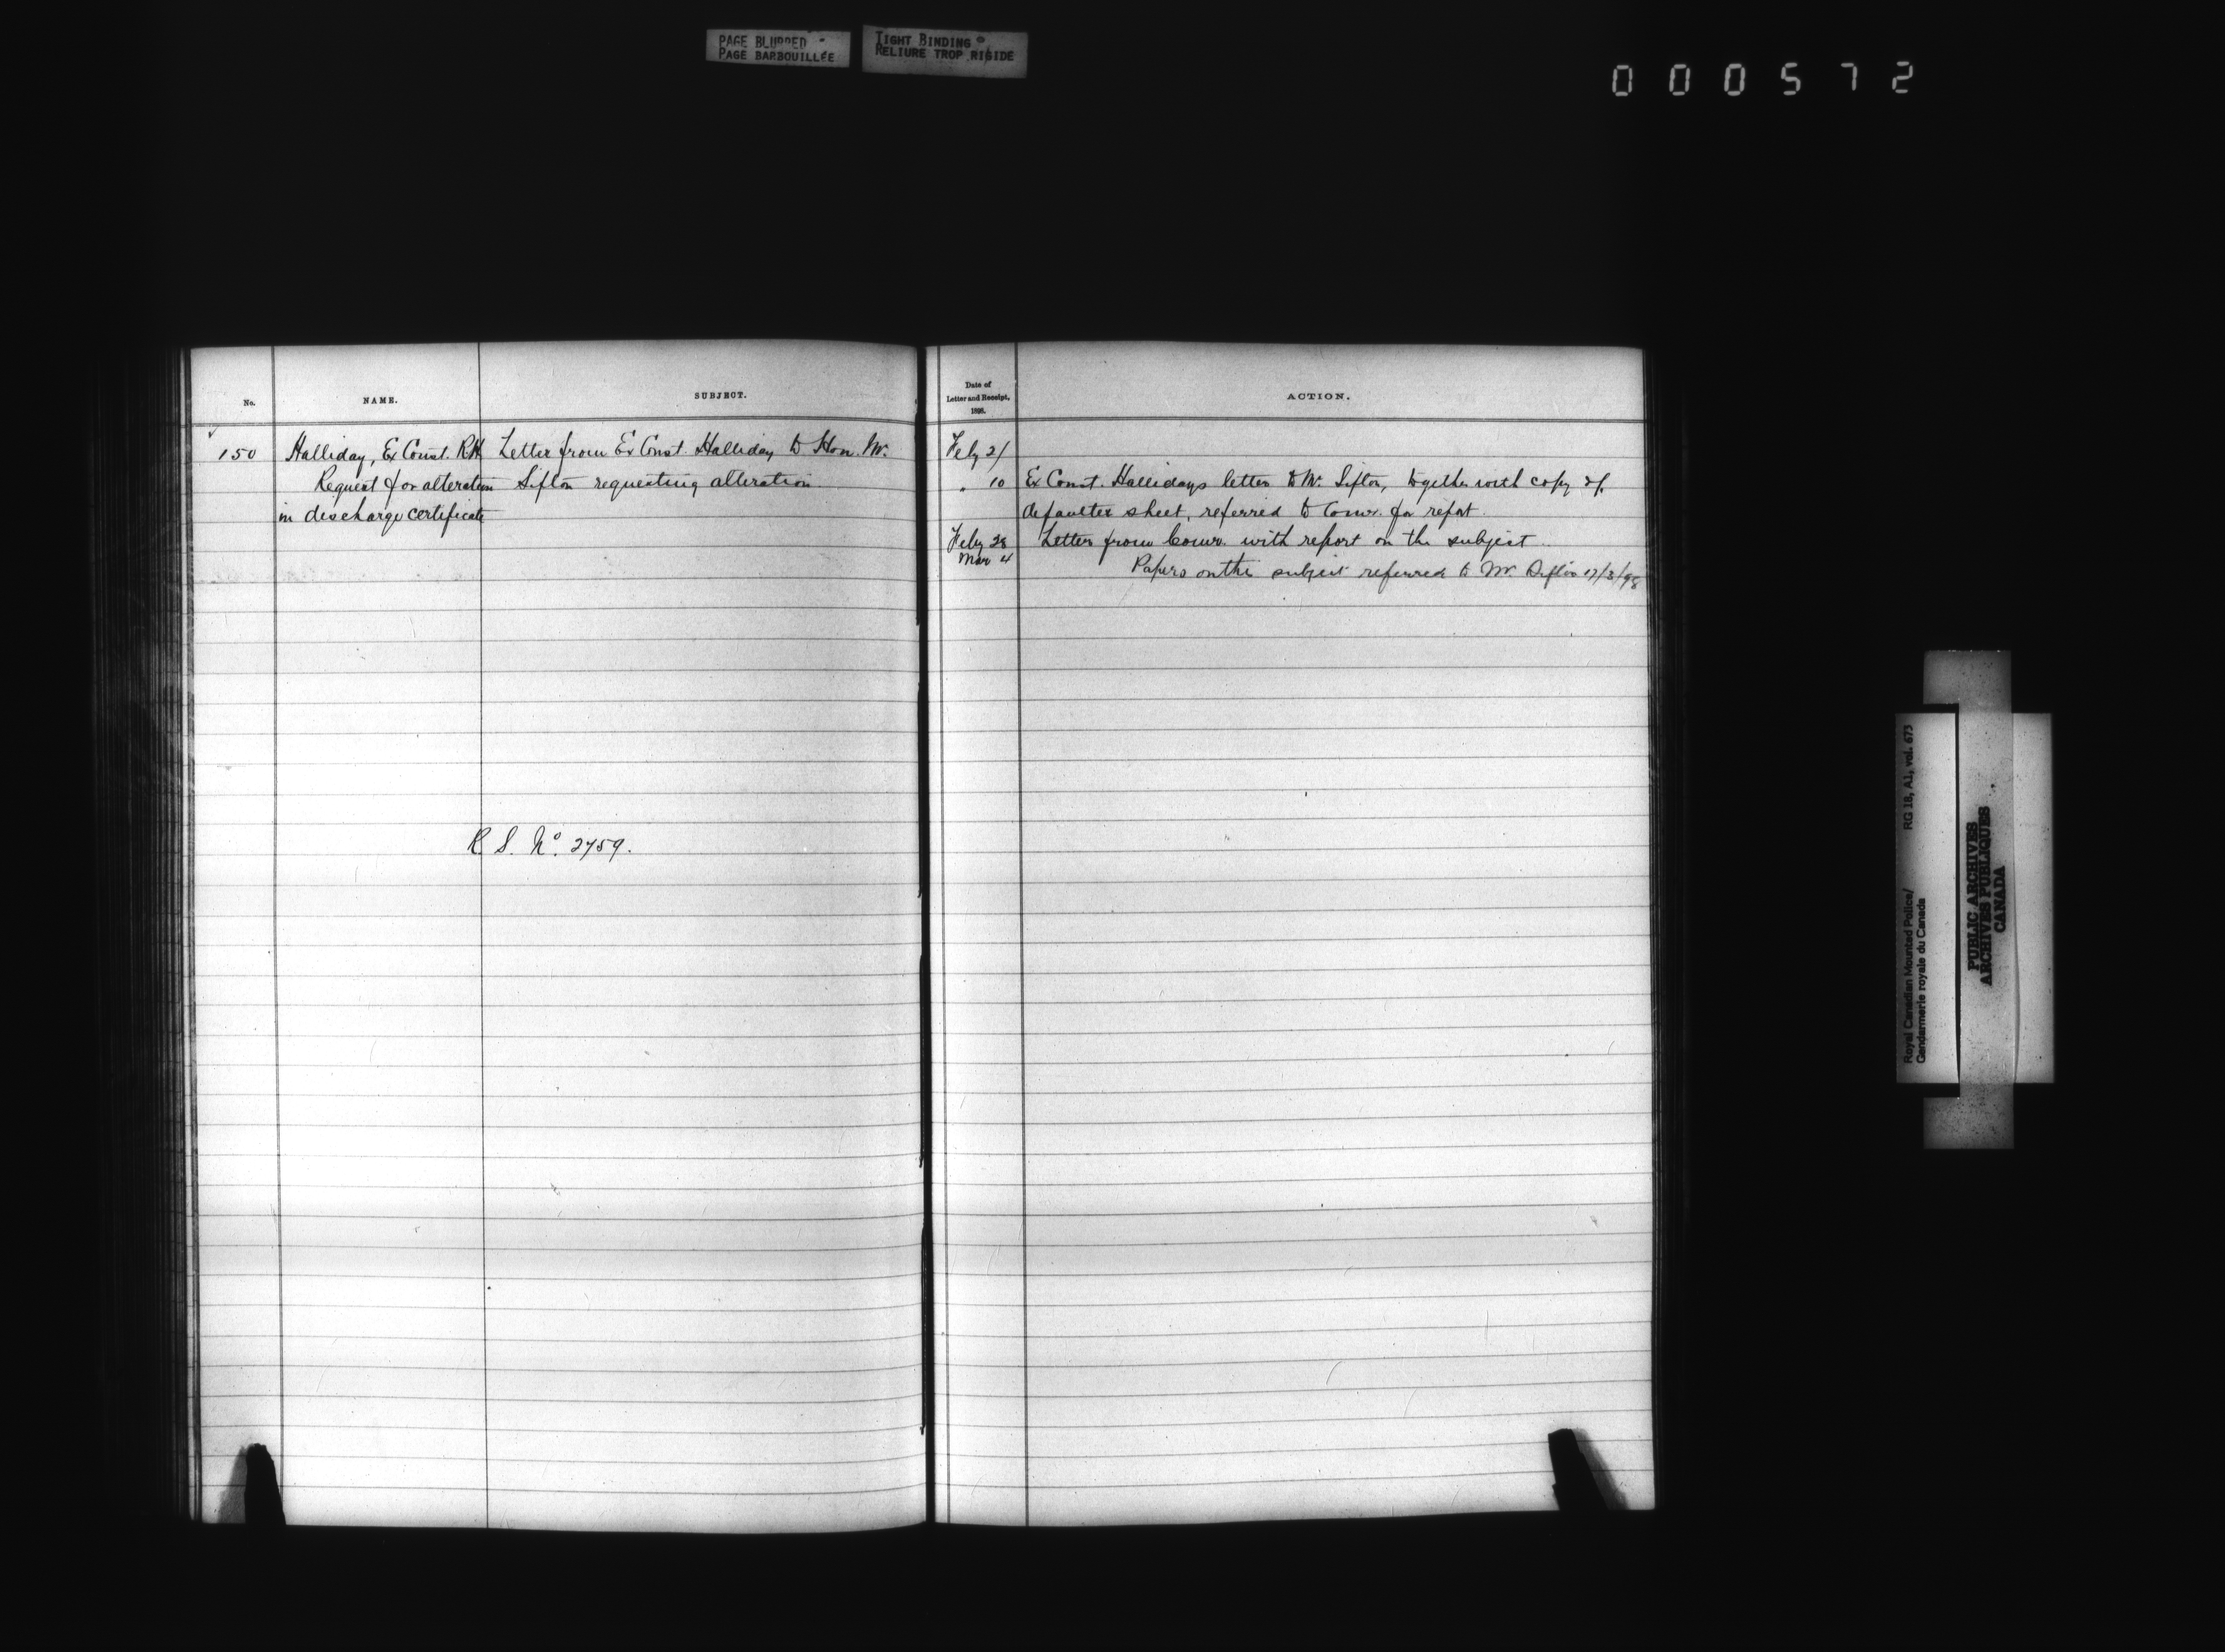 PAGE BLURRED
PAGE BARBOUILLÉE
TIGHT BINDING
RELIURE TROP RIGIDE
000572
No.
NAME.
SUBJECT.
150
Halliday, Ex Const. RH
Request for alteration
in discharge certificate
Letter from Ex Const. Halliday to Hon. Mr.
Sifton requesting alteration
R. S. No. 2759.
Date of
Letter and Receipt,
1898.
ACTION.
Feby
" 10 Ex Const. Hallidays letter to Mr. Sifton, together with copy of
defaulter sheet, referred to Comr. for report.
Feby 28 Letter from Comr. with report on the subject
Mar 4
Papers on the subject referred to Mr. Sifton 17/3/98
Royal Canadian Mounted Police/
Gendarmerie royale du Canada
RG 18, A1, vol. 673
PUBLIC ARCHIVES
ARCHIVES PUBLIQUES
CANADA